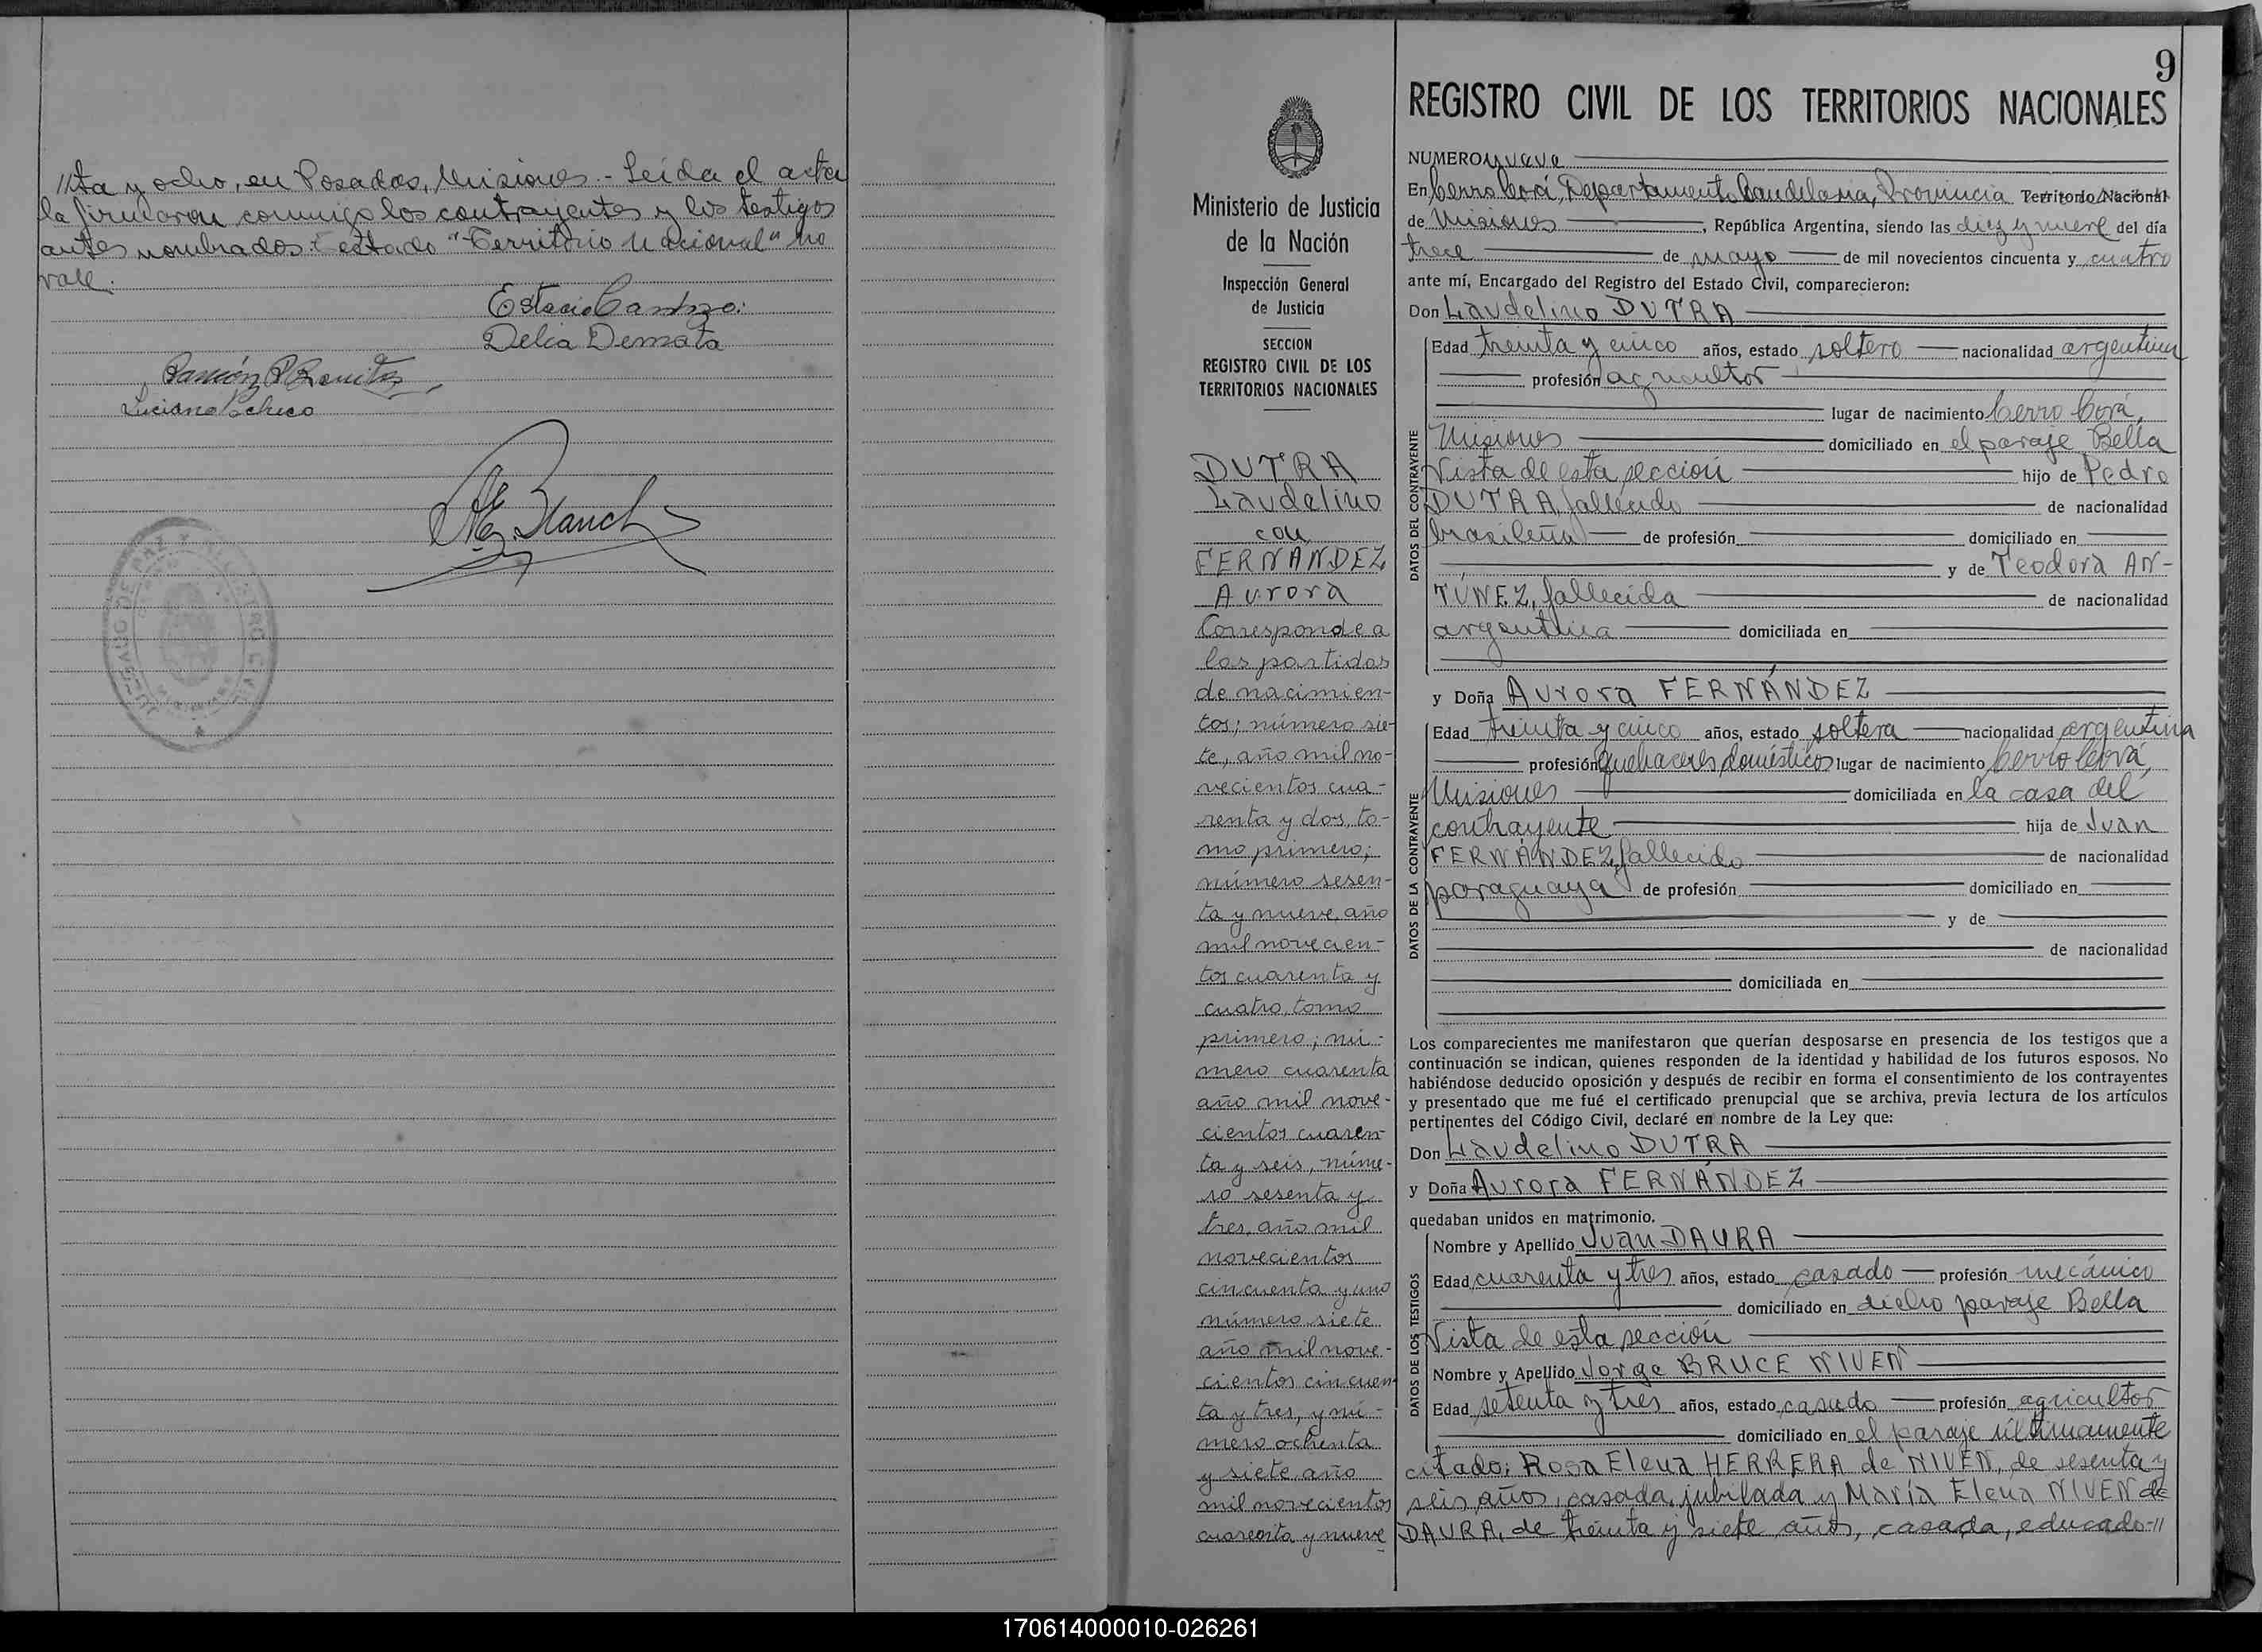 //ta y ocho, en Posadas, Misiones.- Leída el acta
la firmaron conmigo los contrayentes y los testigos
antes nombrados: Testado "Territorio Nacional" no
vale.
Estacio Cardozo.
Delia Demata
Ramón P. Benitez
Luciano Pacheco
9
REGISTRO CIVIL DE LOS TERRITORIOS NACIONALES
Ministerio de Justicia
de la Nación
Inspección General
de Justicia
SECCION
REGISTRO CIVIL DE LOS
TERRITORIOS NACIONALES
DUTRA
Laudelino
con
FERNÁNDEZ
Aurora
Corresponde a
las partidas
de nacimien-
tos; número sie-
te, año mil no-
vecientos cua-
renta y dos, to-
mo primero;
número sesen-
ta y nueve, año
mil novecien-
tos cuarenta y
cuatro, tomo
primero; nú-
mero cuarenta
año mil nove-
cientos cuaren-
ta y seis, núme-
ro sesenta y
tres, año mil
novecientos
cincuenta y uno
número siete
año mil nove-
cientos cincuen
ta y tres, y nú-
mero ochenta
y siete, año
mil novecientos
cuarenta y nueve
NUMERO nueve
En Cerro Corá, Departamento Candelaria, Provincia Territorio Nacional
de Misiones, República Argentina, siendo las diez y nueve del día
trece de mayo de mil novecientos cincuenta y cuatro
ante mí, Encargado del Registro del Estado Civil, comparecieron:
Don Laudelino DUTRA
DATOS DEL CONTRAYENTE
Edad treinta y cinco años, estado soltero nacionalidad argentina
profesión agricultor
lugar de nacimiento Cerro Corá,
Misiones domiciliado en el paraje Bella
Vista de esta sección hijo de Pedro
DUTRA, fallecido de nacionalidad
brasileña de profesión domiciliado en
y de Teodora AN-
TÚNEZ, fallecida de nacionalidad
argentina domiciliada en
y Doña Aurora FERNÁNDEZ
DATOS DE LA CONTRAYENTE
Edad treinta y cinco años, estado soltera nacionalidad argentina
profesión quehaceres domésticos lugar de nacimiento Cerro Corá,
Misiones domiciliada en la casa del
contrayente hija de Juan
FERNÁNDEZ, fallecido de nacionalidad
paraguaya de profesión domiciliado en
y de
de nacionalidad
domiciliada en
Los comparecientes me manifestaron que querían desposarse en presencia de los testigos que a
continuación se indican, quienes responden de la identidad y habilidad de los futuros esposos. No
habiéndose deducido oposición y después de recibir en forma el consentimiento de los contrayentes
y presentado que me fué el certificado prenupcial que se archiva, previa lectura de los artículos
pertinentes del Código Civil, declaré en nombre de la Ley que:
Don Laudelino DUTRA
y Doña Aurora FERNÁNDEZ
quedaban unidos en matrimonio.
DATOS DE LOS TESTIGOS
Nombre y Apellido Juan DAURA
Edad cuarenta y tres años, estado casado profesión mecánico
domiciliado en dicho paraje Bella
Vista de esta sección
Nombre y Apellido Jorge BRUCE NIVEN
Edad setenta y tres años, estado casado profesión agricultor
domiciliado en el paraje últimamente
citado; Rosa Elena HERRERA de NIVEN, de sesenta y
seis años, casada, jubilada y María Elena NIVEN de
DAURA, de treinta y siete años, casada, educado-//
170614000010-026261